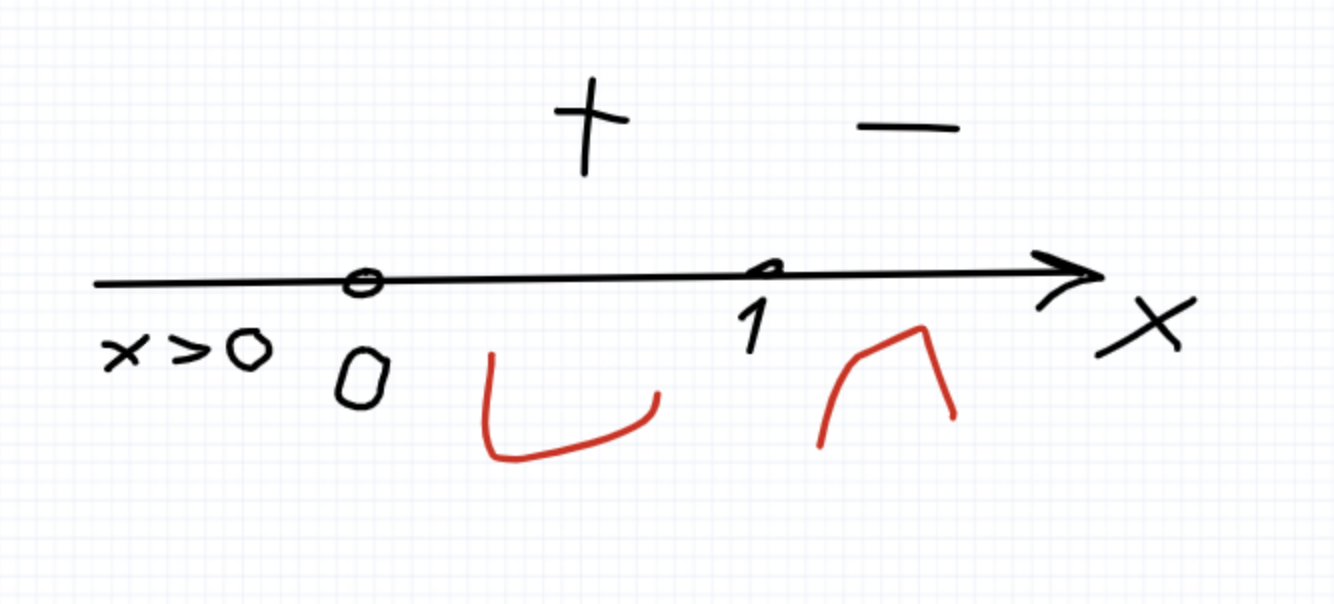 + −
x > 0 0 1 x